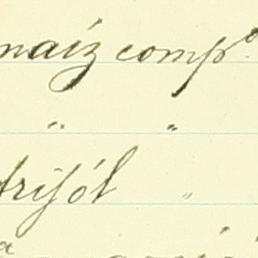 maiz comp.º
" "
frijól "